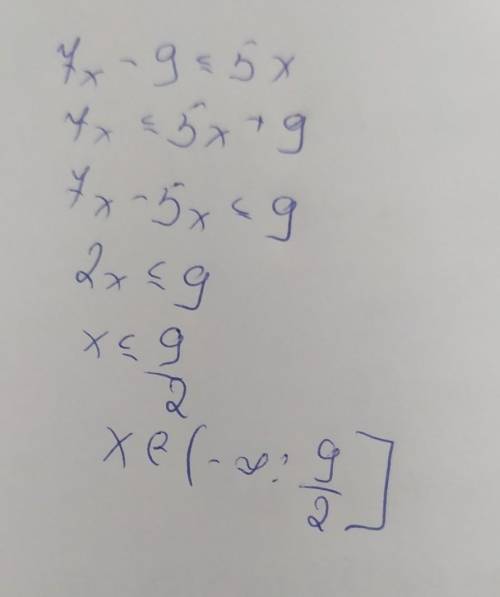 7x - 9 ≤ 5x
7x ≤ 5x + 9
7x - 5x ≤ 9
2x ≤ 9
x ≤ 9/2
x ∈ (-∞; 9/2]